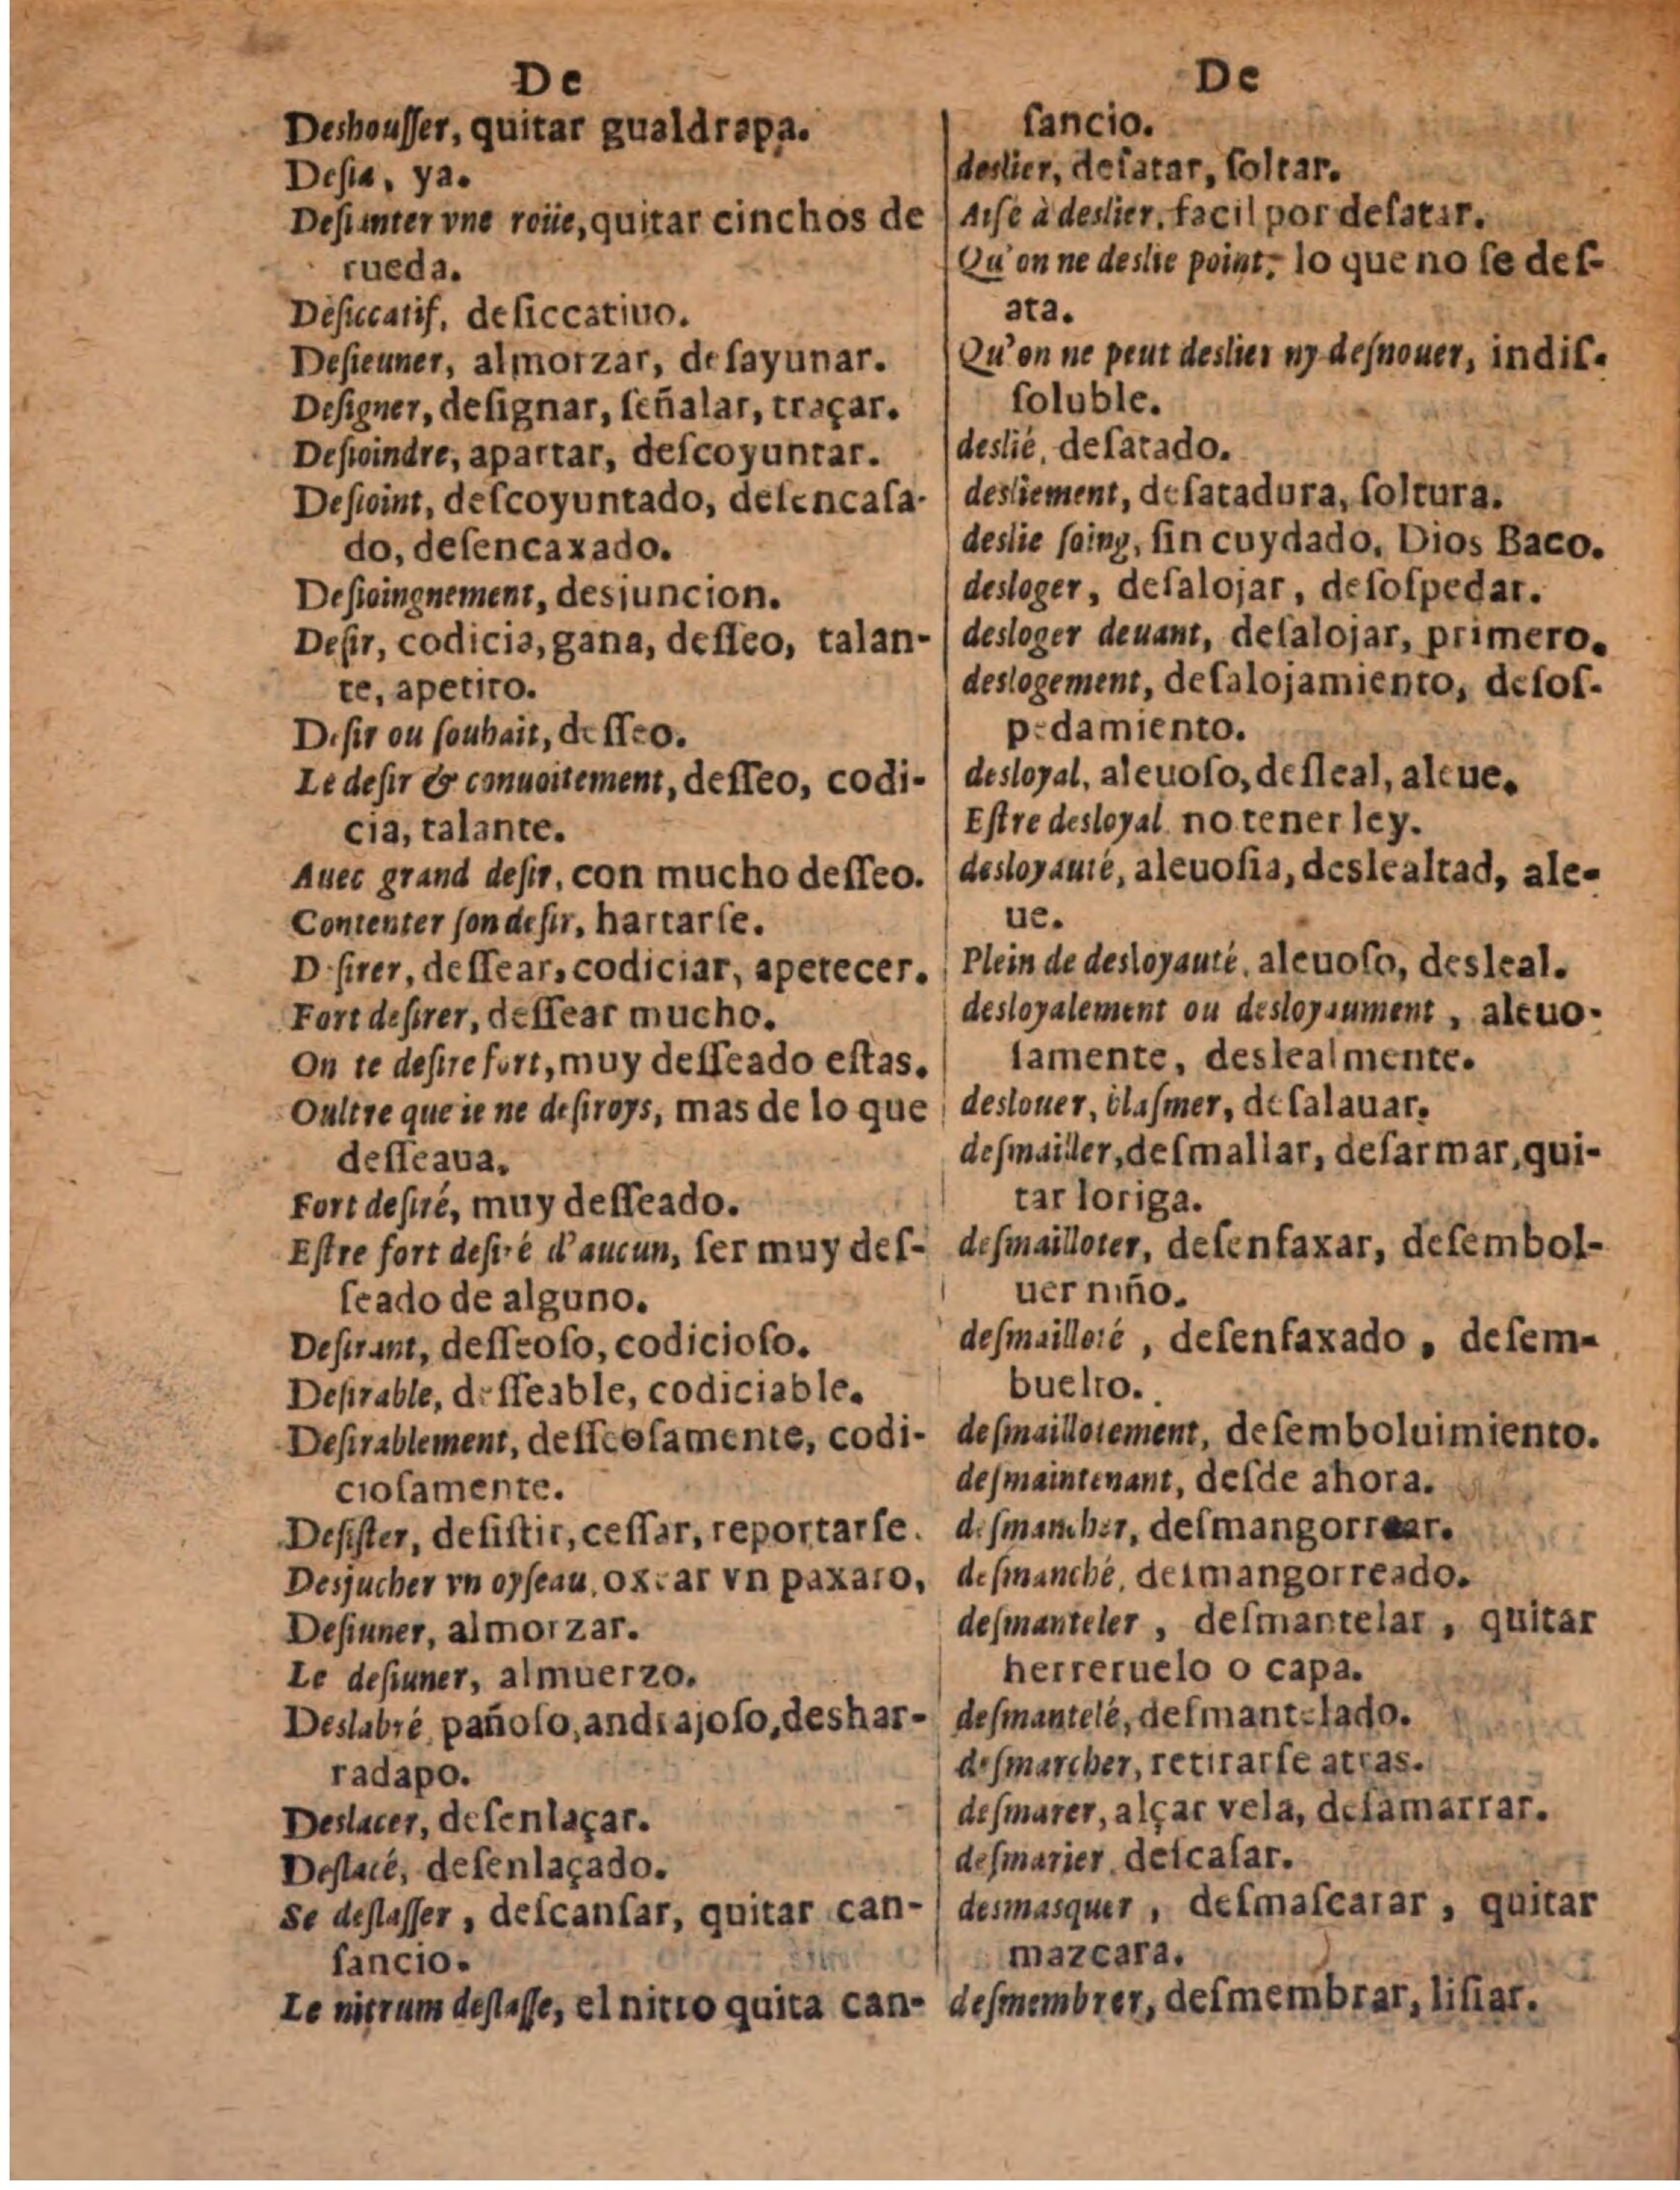 De
Deshouſſer, quitar gualdrapa.
Deſia, ya.
Deſianter vne roüe, quitar cinchos de
rueda.
Deſiccatif, deſiccatiuo.
Deſieuner, almorzar, deſayunar.
Deſigner, deſignar, ſeñalar, traçar.
Deſioindre, apartar, deſcoyuntar.
Deſioint, deſcoyuntado, deſencaſa-
do, deſencaxado.
Deſioingnement, desjuncion.
Deſir, codicia, gana, deſſeo, talan-
te, apetito.
Deſir ou ſouhait, deſſeo.
Le deſir & conuoitement, deſſeo, codi-
cia, talante.
Auec grand deſir, con mucho deſſeo.
Contenter ſon deſir, hartarſe.
Deſirer, deſſear, codiciar, apetecer.
Fort deſirer, deſſear mucho.
On te deſire fort, muy deſſeado eſtas.
Oultre que ie ne deſiroys, mas de lo que
deſſeaua.
Fort deſiré, muy deſſeado.
Eſtre fort deſiré d'aucun, ſer muy deſ-
ſeado de alguno.
Deſirant, deſſeoſo, codicioſo.
Deſirable, deſſeable, codiciable.
Deſirablement, deſſeoſamente, codi-
cioſamente.
Deſiſter, deſiſtir, ceſſar, reportarſe.
Desjucher vn oyſeau, oxear vn paxaro,
Deſiuner, almorzar.
Le deſiuner, almuerzo.
Deslabré, pañoſo, andrajoſo, deshar-
radapo.
Deslacer, deſenlaçar.
Deſlacé, deſenlaçado.
Se deſlaſſer, deſcanſar, quitar can-
ſancio.
Le nitrum deſlaſſe, el nitro quita can-
De
ſancio.
deslier, deſatar, ſoltar.
Aiſé à deslier, facil por deſatar.
Qu'on ne deslie point, lo que no ſe deſ-
ata.
Qu'on ne peut deslier ny deſnouer, indiſ-
ſoluble.
deslié, deſatado.
desliement, deſatadura, ſoltura.
deslie ſoing, ſin cuydado, Dios Baco.
desloger, deſalojar, deſoſpedar.
desloger deuant, deſalojar, primero.
deslogement, deſalojamiento, deſoſ-
pedamiento.
desloyal, aleuoſo, deſleal, aleue.
Eſtre desloyal, no tener ley.
desloyauté, aleuoſia, deslealtad, ale-
ue.
Plein de desloyauté, aleuoſo, desleal.
desloyalement ou desloyaument, aleuo-
ſamente, deslealmente.
deslouer, blaſmer, deſalauar.
deſmailler, deſmallar, deſarmar, qui-
tar loriga.
deſmailloter, deſenfaxar, deſembol-
uer niño.
deſmailloté, deſenfaxado, deſem-
buelto.
deſmaillotement, deſemboluimiento.
deſmaintenant, deſde ahora.
deſmancher, deſmangorrear.
deſmanché, deſmangorreado.
deſmanteler, deſmantelar, quitar
herreruelo o capa.
deſmantelé, deſmantelado.
deſmarcher, retirarſe atras.
deſmarer, alçar vela, deſamarrar.
deſmarier, deſcaſar.
desmasquer, deſmaſcarar, quitar
mazcara.
deſmembrer, deſmembrar, liſiar.